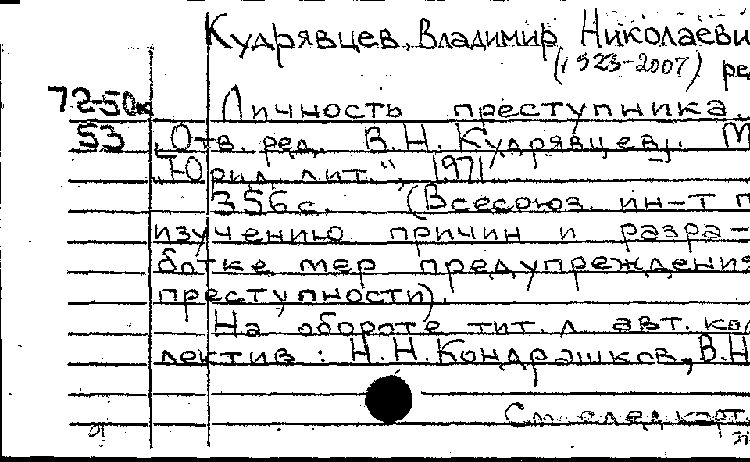 Кудрявцев, Владимир Николаеви
(1923-2007) ре
72-50к Личность преступника.
53 Отв. ред. В.Н. Кудрявцев. М
"Юрид. лит.", 1971
356с. (Всесоюз. ин-т п
изучению причин и разра-
ботке мер предупреждения
преступности).
На обороте тит. л. авт. кол
лектив: Н.Н. Кондрашков, В.Н
См. след. карт.